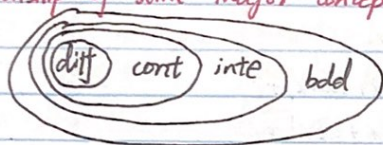 of some major concep
diff cont inte bdd